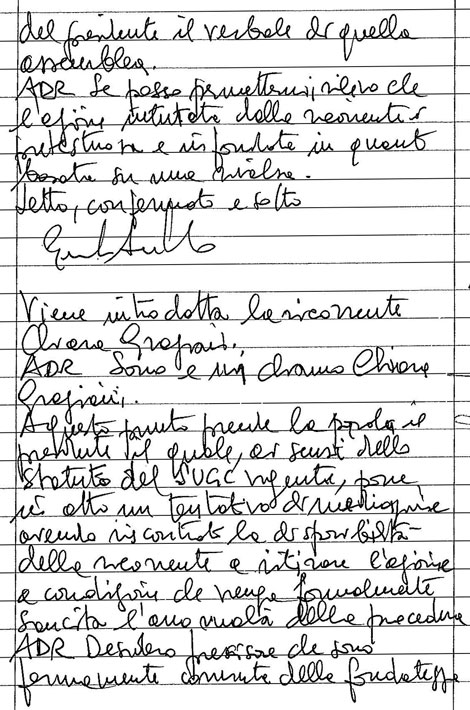 del presidente il verbale di quella
assemblea.
ADR Se posso permettermi, rilevo che
l'azione intentata dalla ricorrente è
pretestuosa e infondata in quanto
basata su una
Letto, confermato e sotto

Viene introdotta la ricorrente
Chiara Graziani.
ADR Sono e mi chiamo Chiara
Graziani.
A questo punto prende la parola il
presidente il quale, ai sensi dello
statuto del SUGC vigente, pone
in atto un tentativo di mediazione
avendo riscontrato la disponibilità
della ricorrente a ritirare l'azione
a condizione che venga formalmente
sancita l'anomalia della procedura
ADR Desidero precisare che sono
fermamente convinta della fondatezza